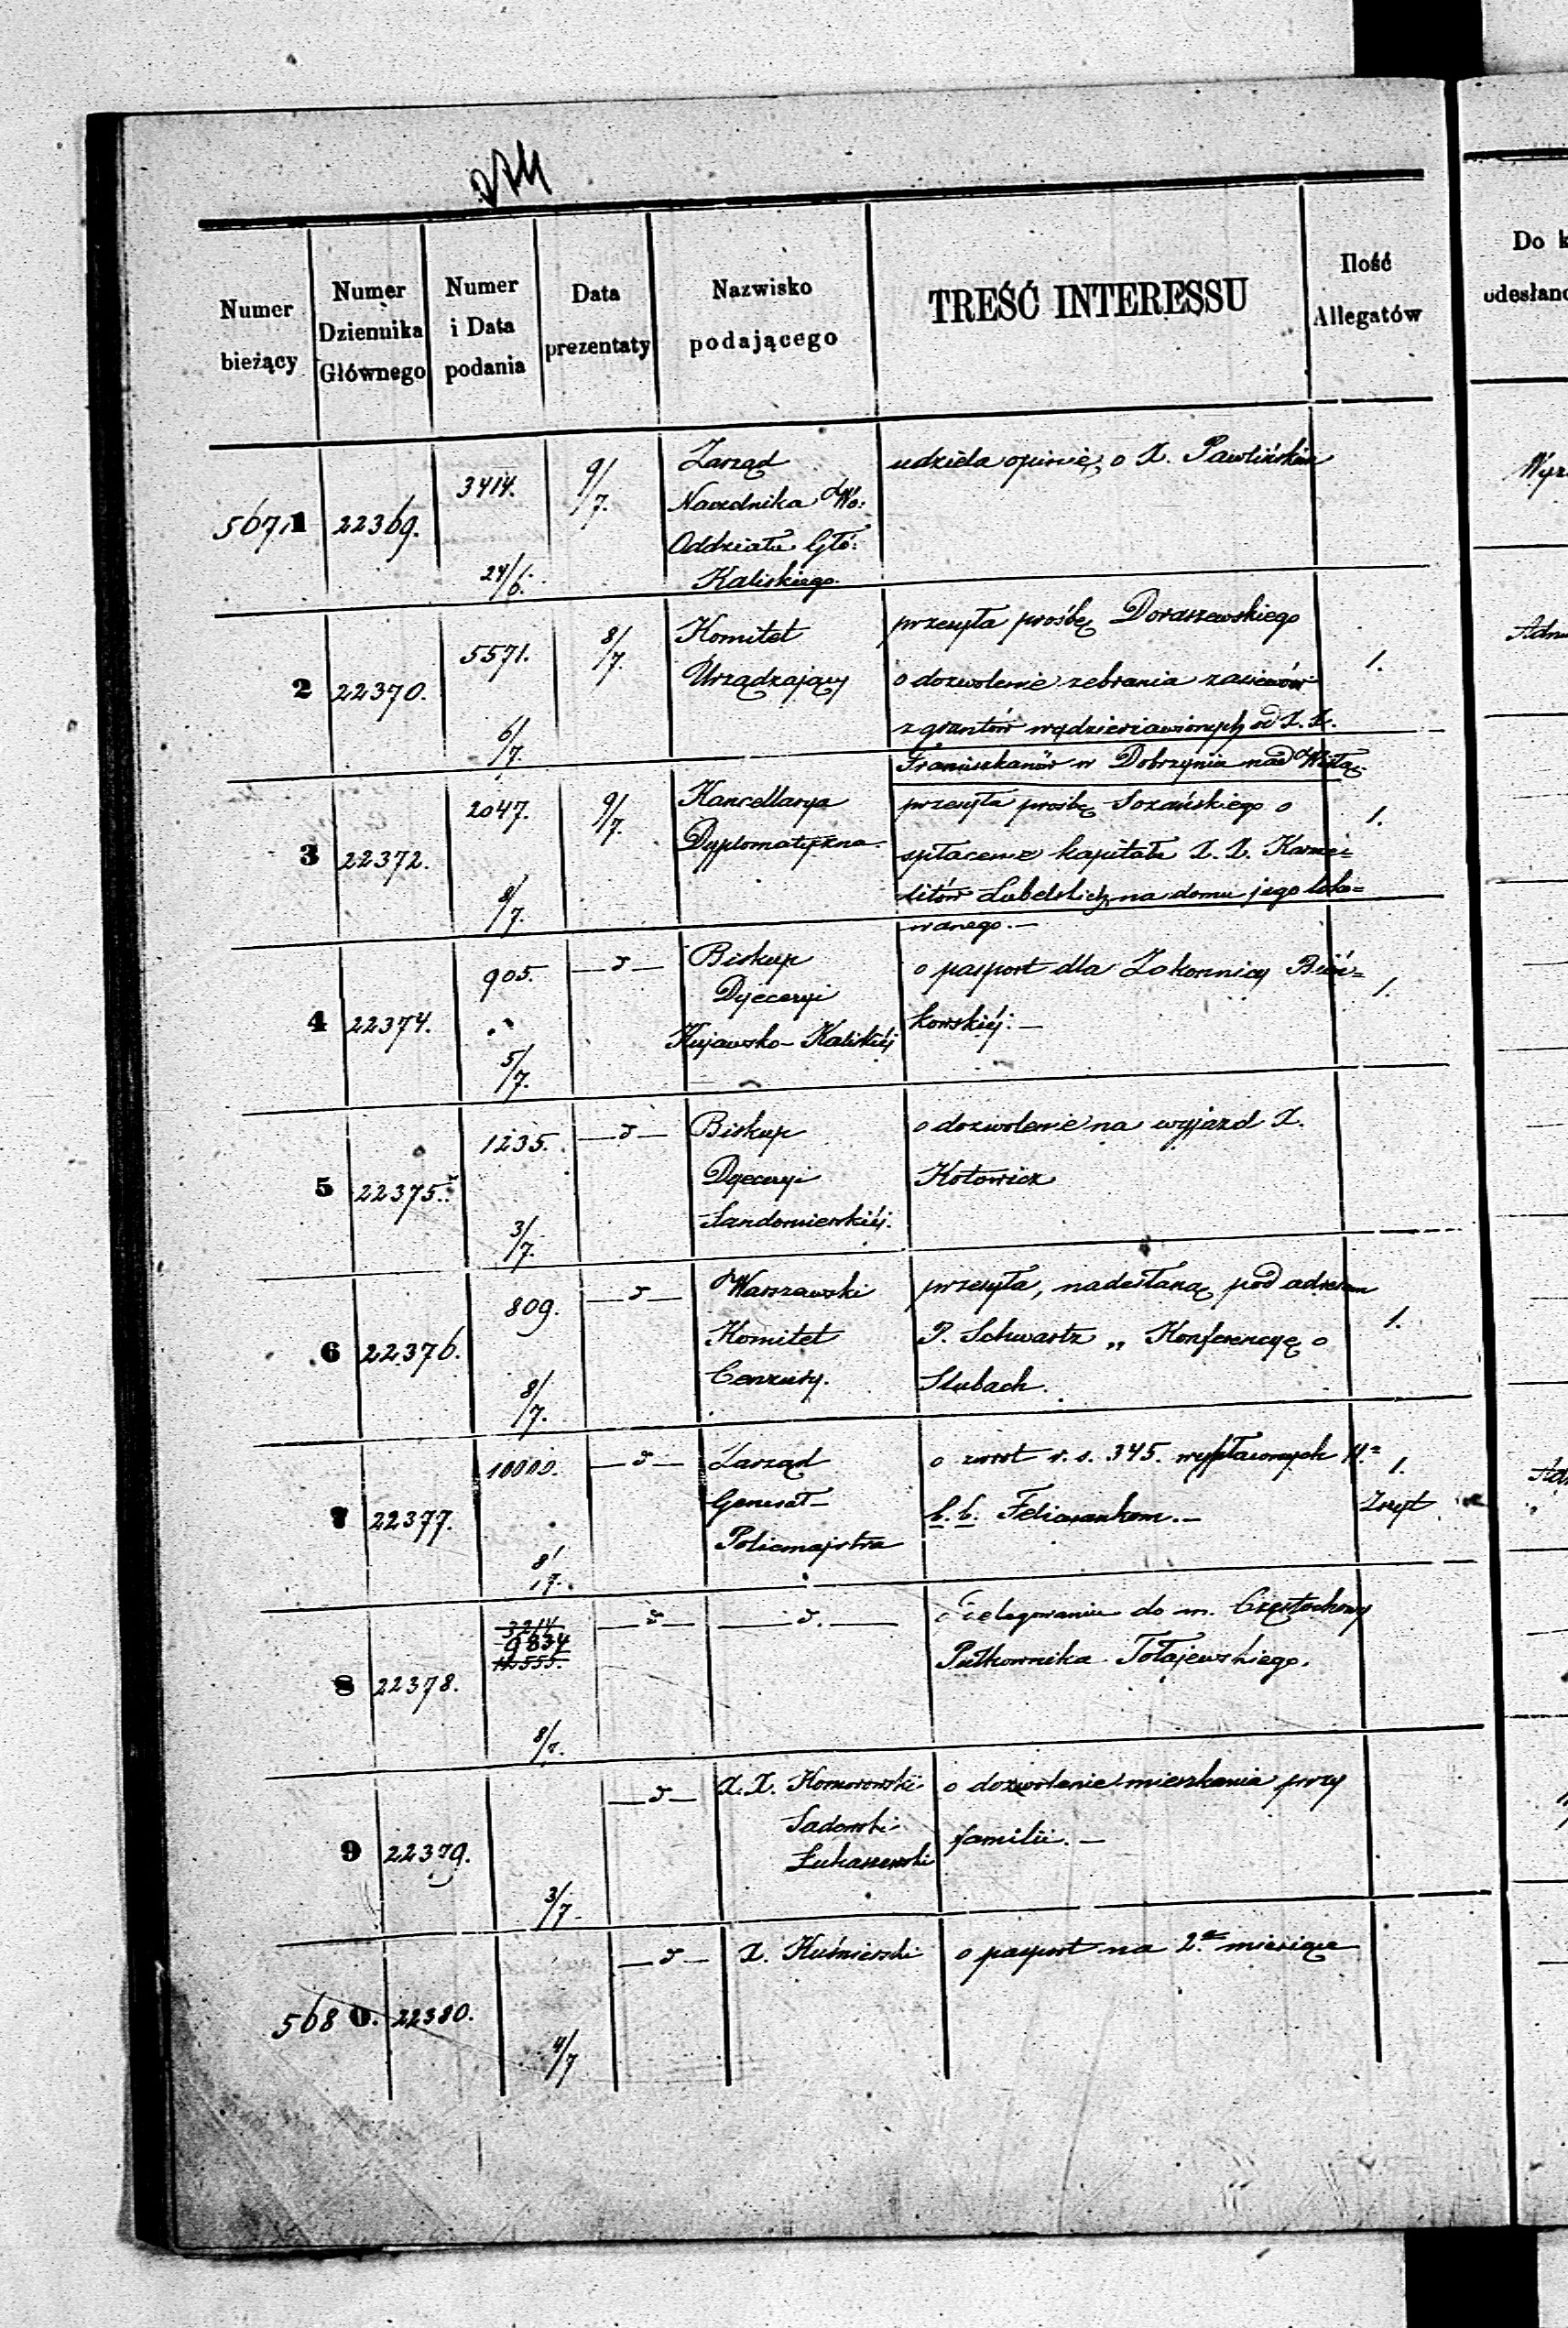 Numer bieżący
Numer Dziennika Głównego
Numer i Data podania
Data prezentaty
Nazwisko podającego
TREŚĆ INTERESSU
Ilość Allegatów
Do k
odesłano
5671
22369.
3414.
24/6.
9/7.
Zarząd
Naczelnika Wo:
Oddziału Głó:
Kaliskiego.
udziela opinię, o X. Pawlińskim
2
22370.
5571.
6/7.
8/7.
Komitet
Urządzający
przesyła prośbę Doraszewskiego
o dozwolenie zebrania zasiewów
z gruntów wydzierżawionych od X. X.
Franciszkanów w Dobrzyniu nad Wisłą.
1.
3
22372.
2047.
8/7.
9/7.
Kancellarya
Dyplomatyczna.
przesyła prośbę Sozańskiego o
spłacenie kapitału X. X. Karme=
litów Lubelskich na domu jego loko=
wanego. —
1.
4
22374.
905.
5/7.
— d —
Biskup
Dyecezyi
Kujawsko-Kaliskiéj
o pasport dla Zakonnicy
kowskiéj. —
1.
5
22375.
1235.
3/7.
— d —
Biskup
Dyecezyi
Sandomierskiéj.
o dozwolenie na wyjazd X.
Kotowicz
6
22376.
809.
8/7.
— d —
Warszawski
Komitet
Cenzury.
przesyła, nadesłaną pod adresem
P. Schwartz „ Konferencyę o
Slubach.
1.
7
22377.
10000.
8/7.
— d —
Zarząd
Generał-
Policmajstra
o zwrot r. s. 345. wypłaconych
b. b. Felicyankom. —
1.
Zszyt
8
22378.
3214
9834
12555.
8/7.
— d —
— d. —
o delegowaniu do m. Częstochowy
Pułkownika Tołajewskiego.
9
22379.
3/7
— d —
X. X. Komorowski
Sadowski
Łukaszewski
o dozwolenie mieszkania przy
familii. —
5680.
22380.
4/7
— d —
X. Kuśnierski
o pasport na 2. miesiące